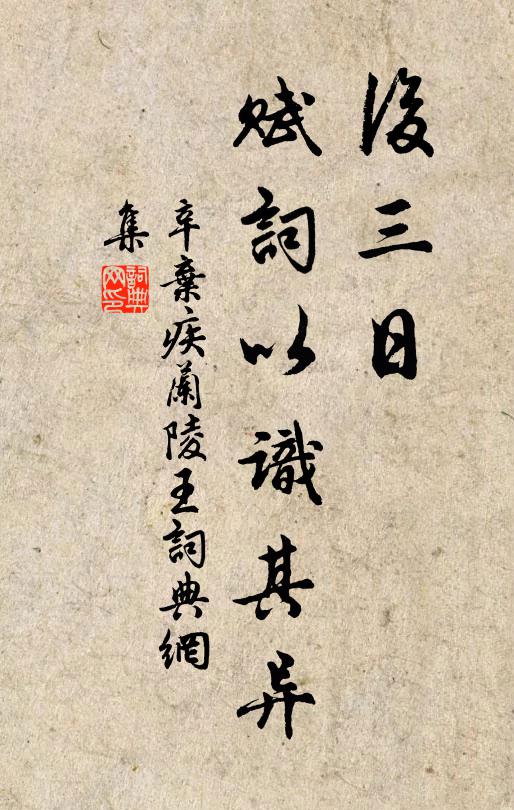 後三日
賦詞以識其异
辛棄疾蘭陵王詞典網
集
詞典網印